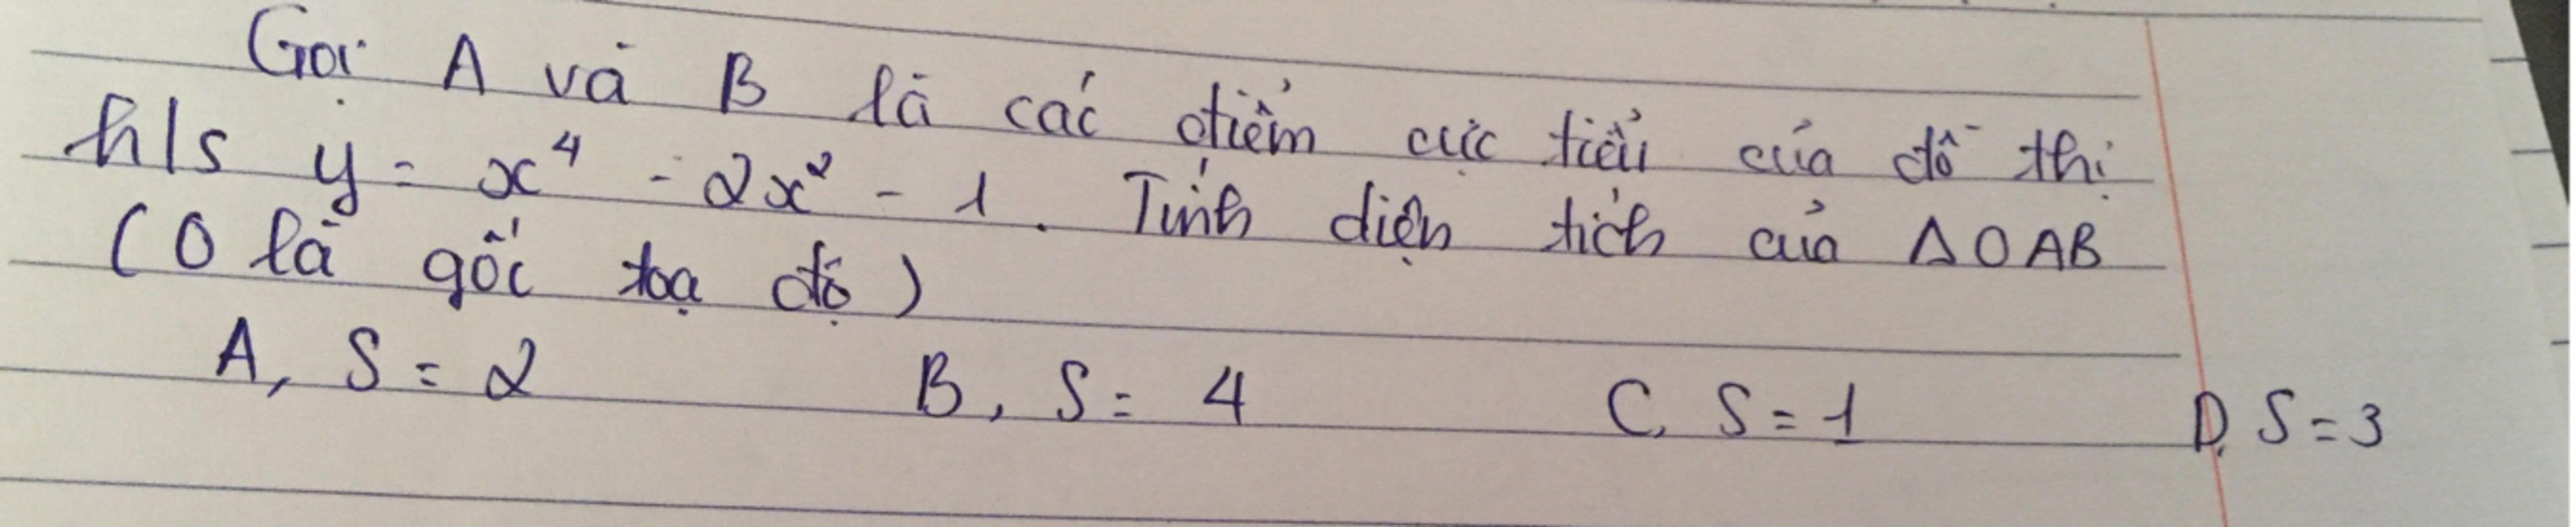 Gọi A và B là các điểm cực tiểu của đồ thị
h/s y = x⁴ - 2x² - 1. Tính diện tích của ΔOAB
(O là gốc toạ độ)
A, S = 2 B, S = 4 C, S = 1 D, S = 3